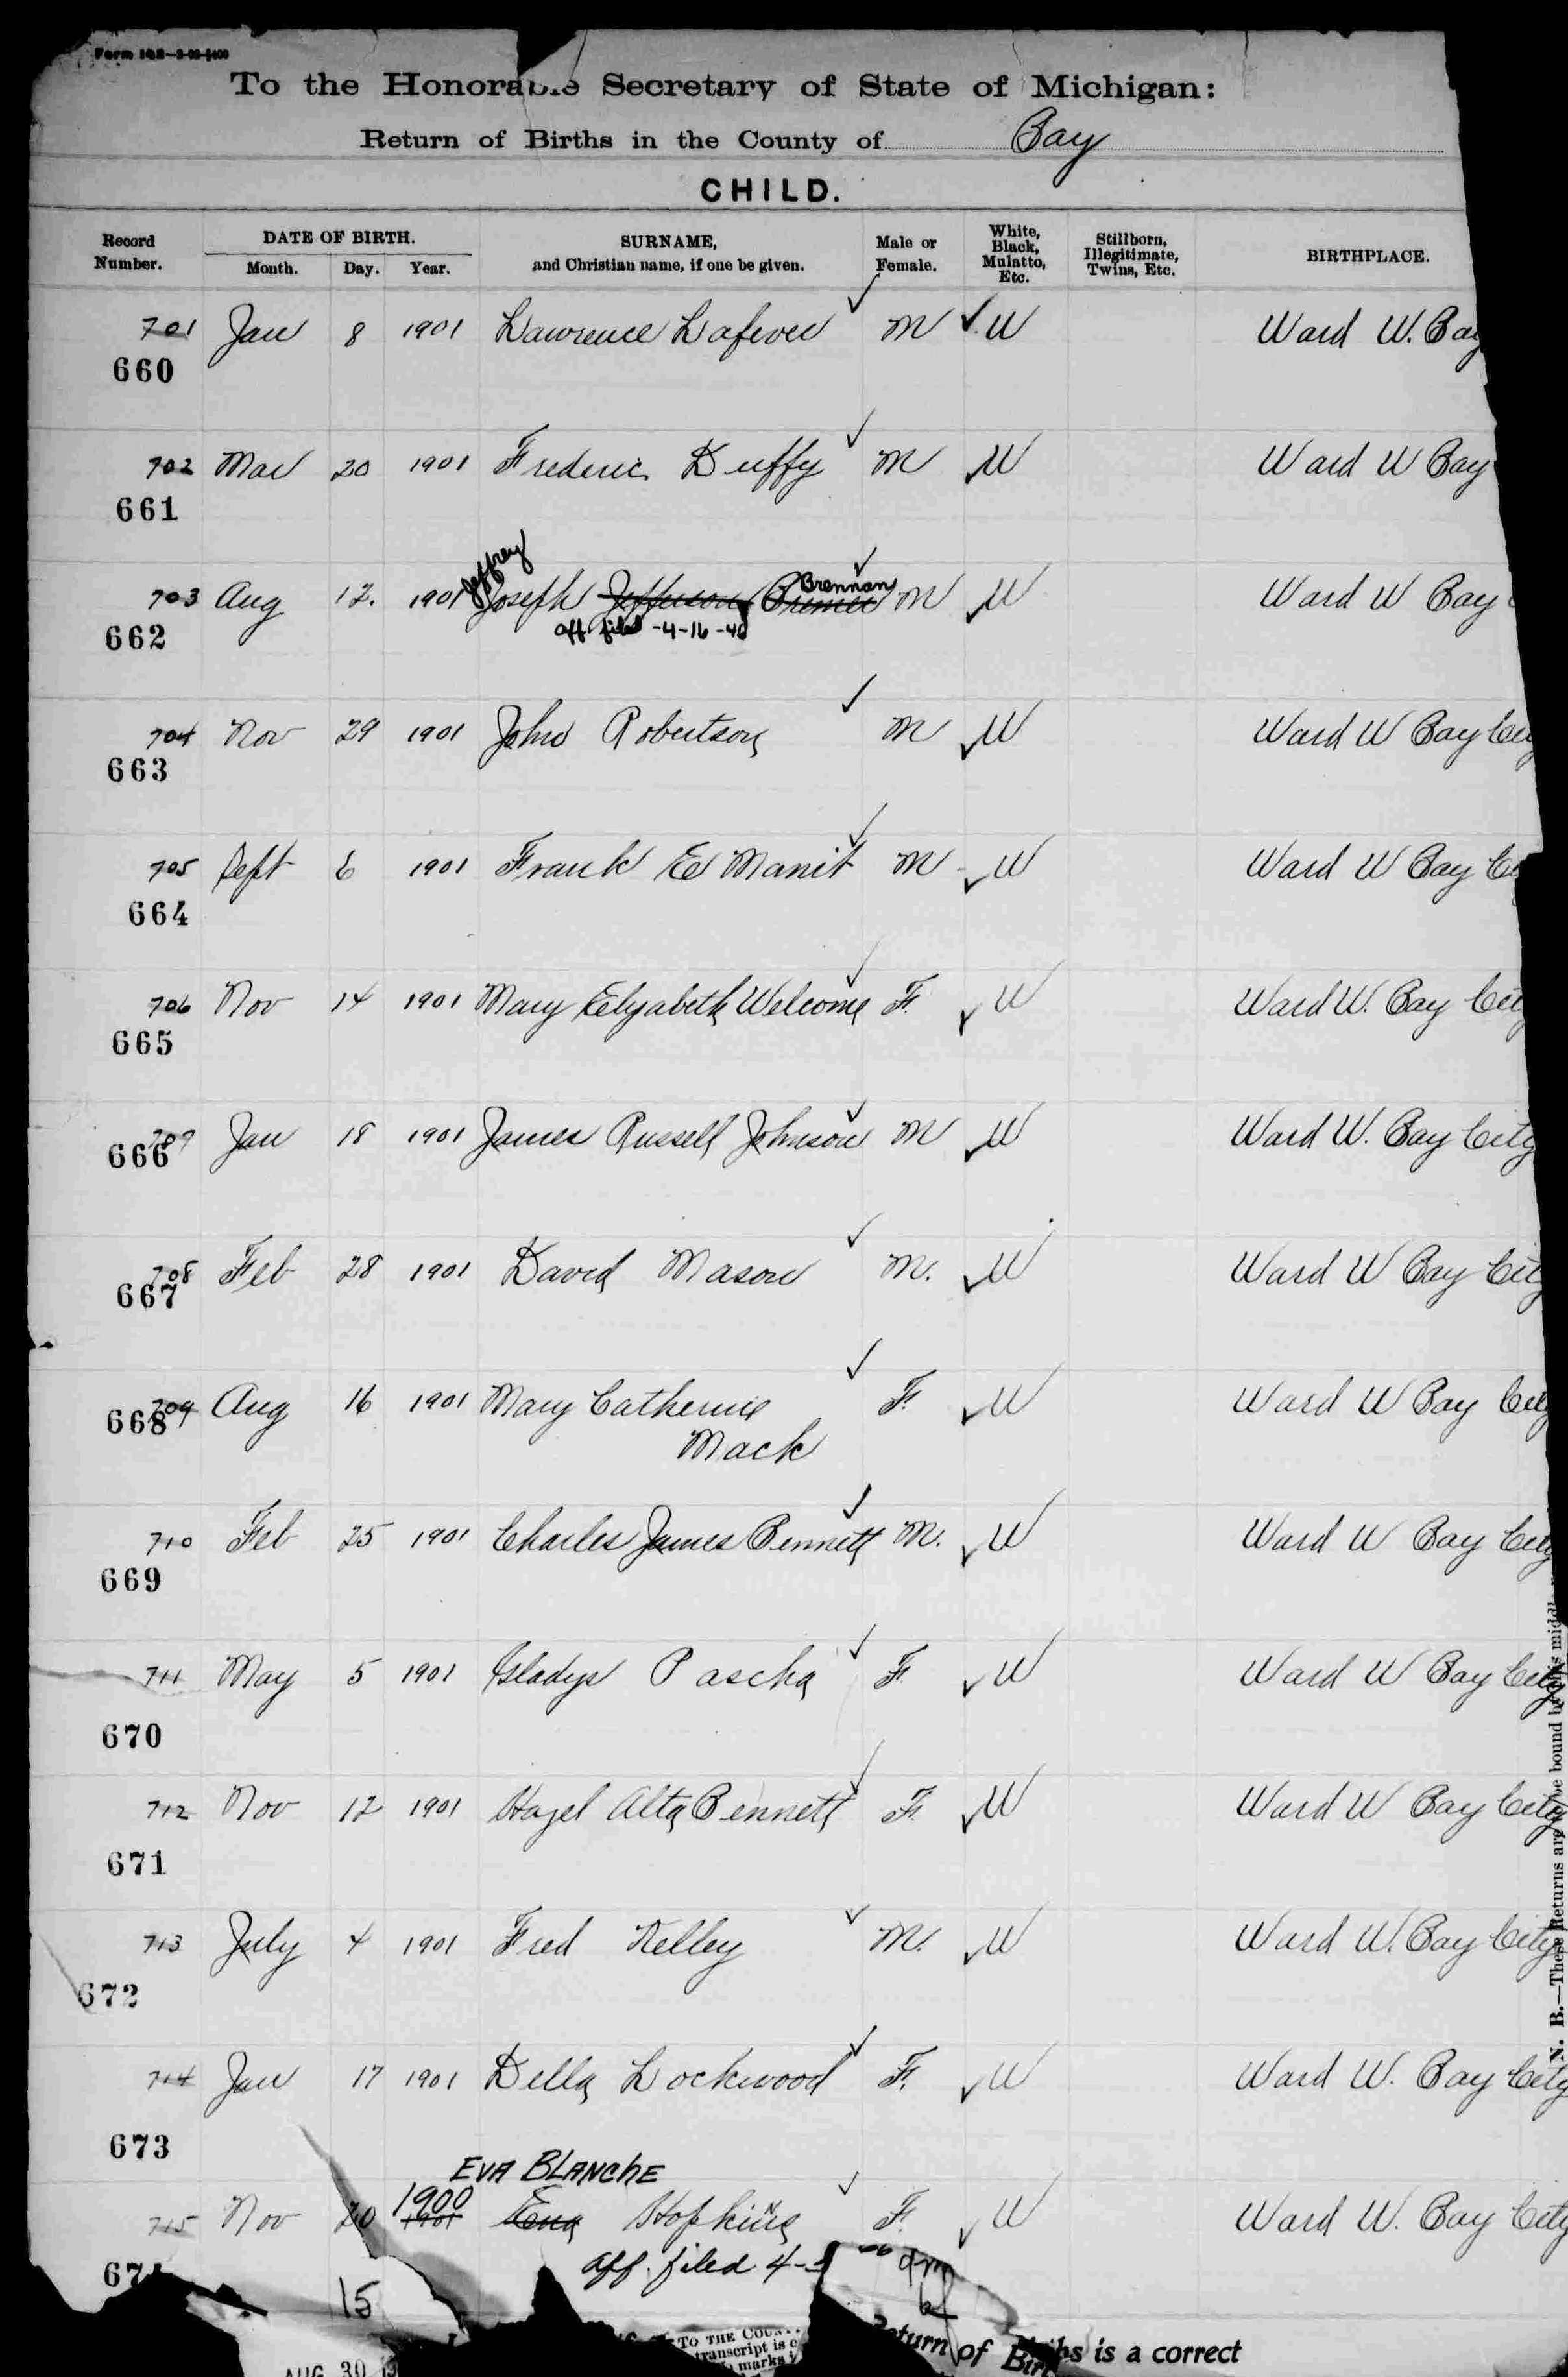 To the Honorable Secretary of State of Michigan:
Return of Births in the County of Bay
CHILD.
Record Number.
DATE OF BIRTH.
Month. Day. Year.
SURNAME, and Christian name, if one be given.
Male or Female.
White, Black, Mulatto, Etc.
Stillborn, Illegitimate, Twins, Etc.
BIRTHPLACE.
701 Jan 8 1901 Lawrence Lafever M W Ward W. Bay
660
702 Mar 20 1901 Frederic Duffy M W Ward W Bay
661
Jeffrey
Brennan
703 Aug 12. 1901 Joseph Jefferson M W Ward W Bay
aff. filed -4-16-40
662
704 Nov 29 1901 John Robertson M W Ward W Bay City
663
705 Sept 6 1901 Frank E Manit M W Ward W Bay
664
706 Nov 14 1901 Mary Elizabeth Welcome F. W Ward W. Bay City
665
707 Jan 18 1901 James Russell Johnson M W Ward W. Bay City
666
708 Feb 28 1901 David Mason M. W Ward W Bay City
667
709 Aug 16 1901 Mary Catherine F. W Ward W Bay City
668
Mack
710 Feb 25 1901 Charles James Bennett M. W Ward W Bay City
669
711 May 5 1901 Gladys Pascha F W Ward W Bay City
670
712 Nov 12 1901 Hazel Alta Bennett F. W Ward W Bay City
671
713 July 4 1901 Fred Kelley M. W Ward W. Bay City
672
714 Jan 17 1901 Della Lockwood F. W Ward W. Bay City
673
EVA BLANCHE
1900
715 Nov 20 1901 Ena Hopkins F. W Ward W. Bay City
aff. filed 4-
67
15
AUG 30
TO THE
transcript is
marks
Return of Births is a correct
N. B.—These Returns are to be bound